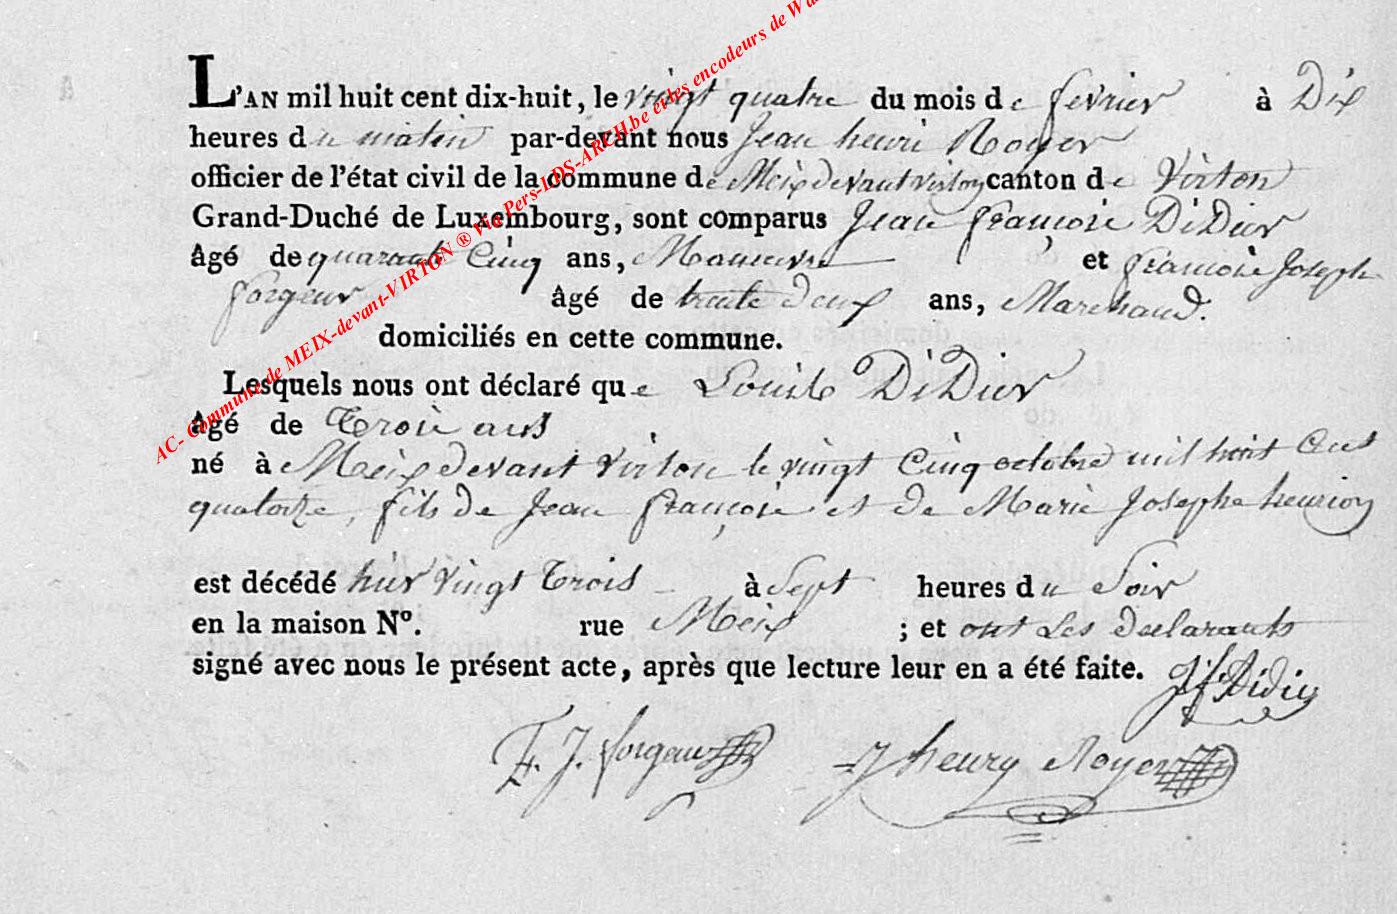 L'AN mil huit cent dix-huit, le vingt quatre du mois de fevrier à Dix
heures du matin par-devant nous Jean henri Royer
officier de l'état civil de la commune de Meix devant virton canton de Virton
Grand-Duché de Luxembourg, sont comparus Jean françois DiDier
âgé de quarante Cinq ans, Manœuvre et françois Joseph
forgeur âgé de trente deux ans, Marchand.
domiciliés en cette commune.
Lesquels nous ont déclaré que Louis DiDier
âgé de Trois ans
né à Meix devant virton le vingt Cinq octobre mil huit Cent
quatorze, fils de Jean françois et de Marie Josephe henrion
est décédé hier vingt Trois à Sept heures du Soir
en la maison N°. rue Meix ; et ont Les declarants
signé avec nous le présent acte, après que lecture leur en a été faite. J f Didier
F. J. forgeur J henry Royer
AC- Commune de MEIX-devant-VIRTON ® Via Pers-LDS-ARCH.be et les encodeurs de